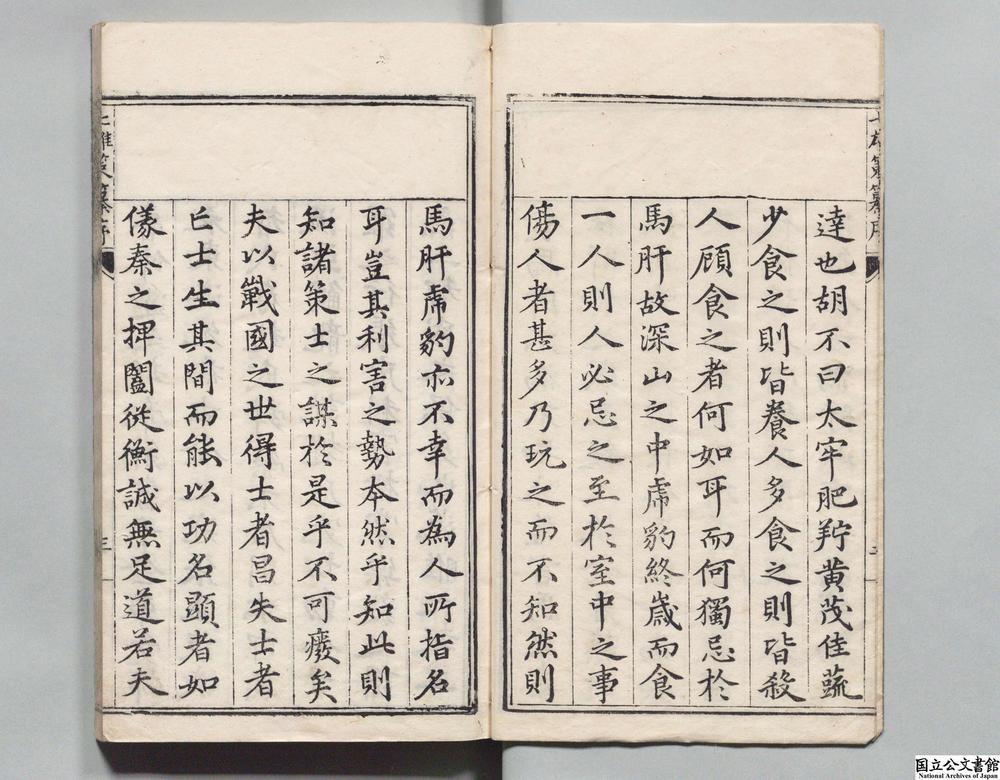 達也胡不曰太牢肥羜黄茂佳蔬
少食之則皆養人多食之則皆殺
人顧食之者何如耳而何獨忌於
馬肝故深山之中虎豹終歲而食
一人則人必忌之至於室中之事
傷人者甚多乃玩之而不知然則
馬肝虎豹亦不幸而為人所指名
耳豈其利害之勢本然乎知此則
知諸策士之謀於是乎不可廢矣
夫以戰國之世得士者昌失士者
亡士生其間而能以功名顯者如
儀秦之捭闔從衡誠無足道若夫
七雄策纂序
三
国立公文書館
National Archives of Japan